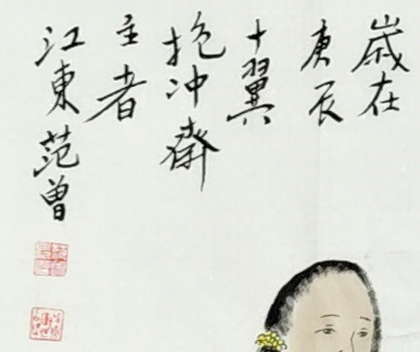 歲在
庚辰
十翼
抱冲齋
主者
江東范曾